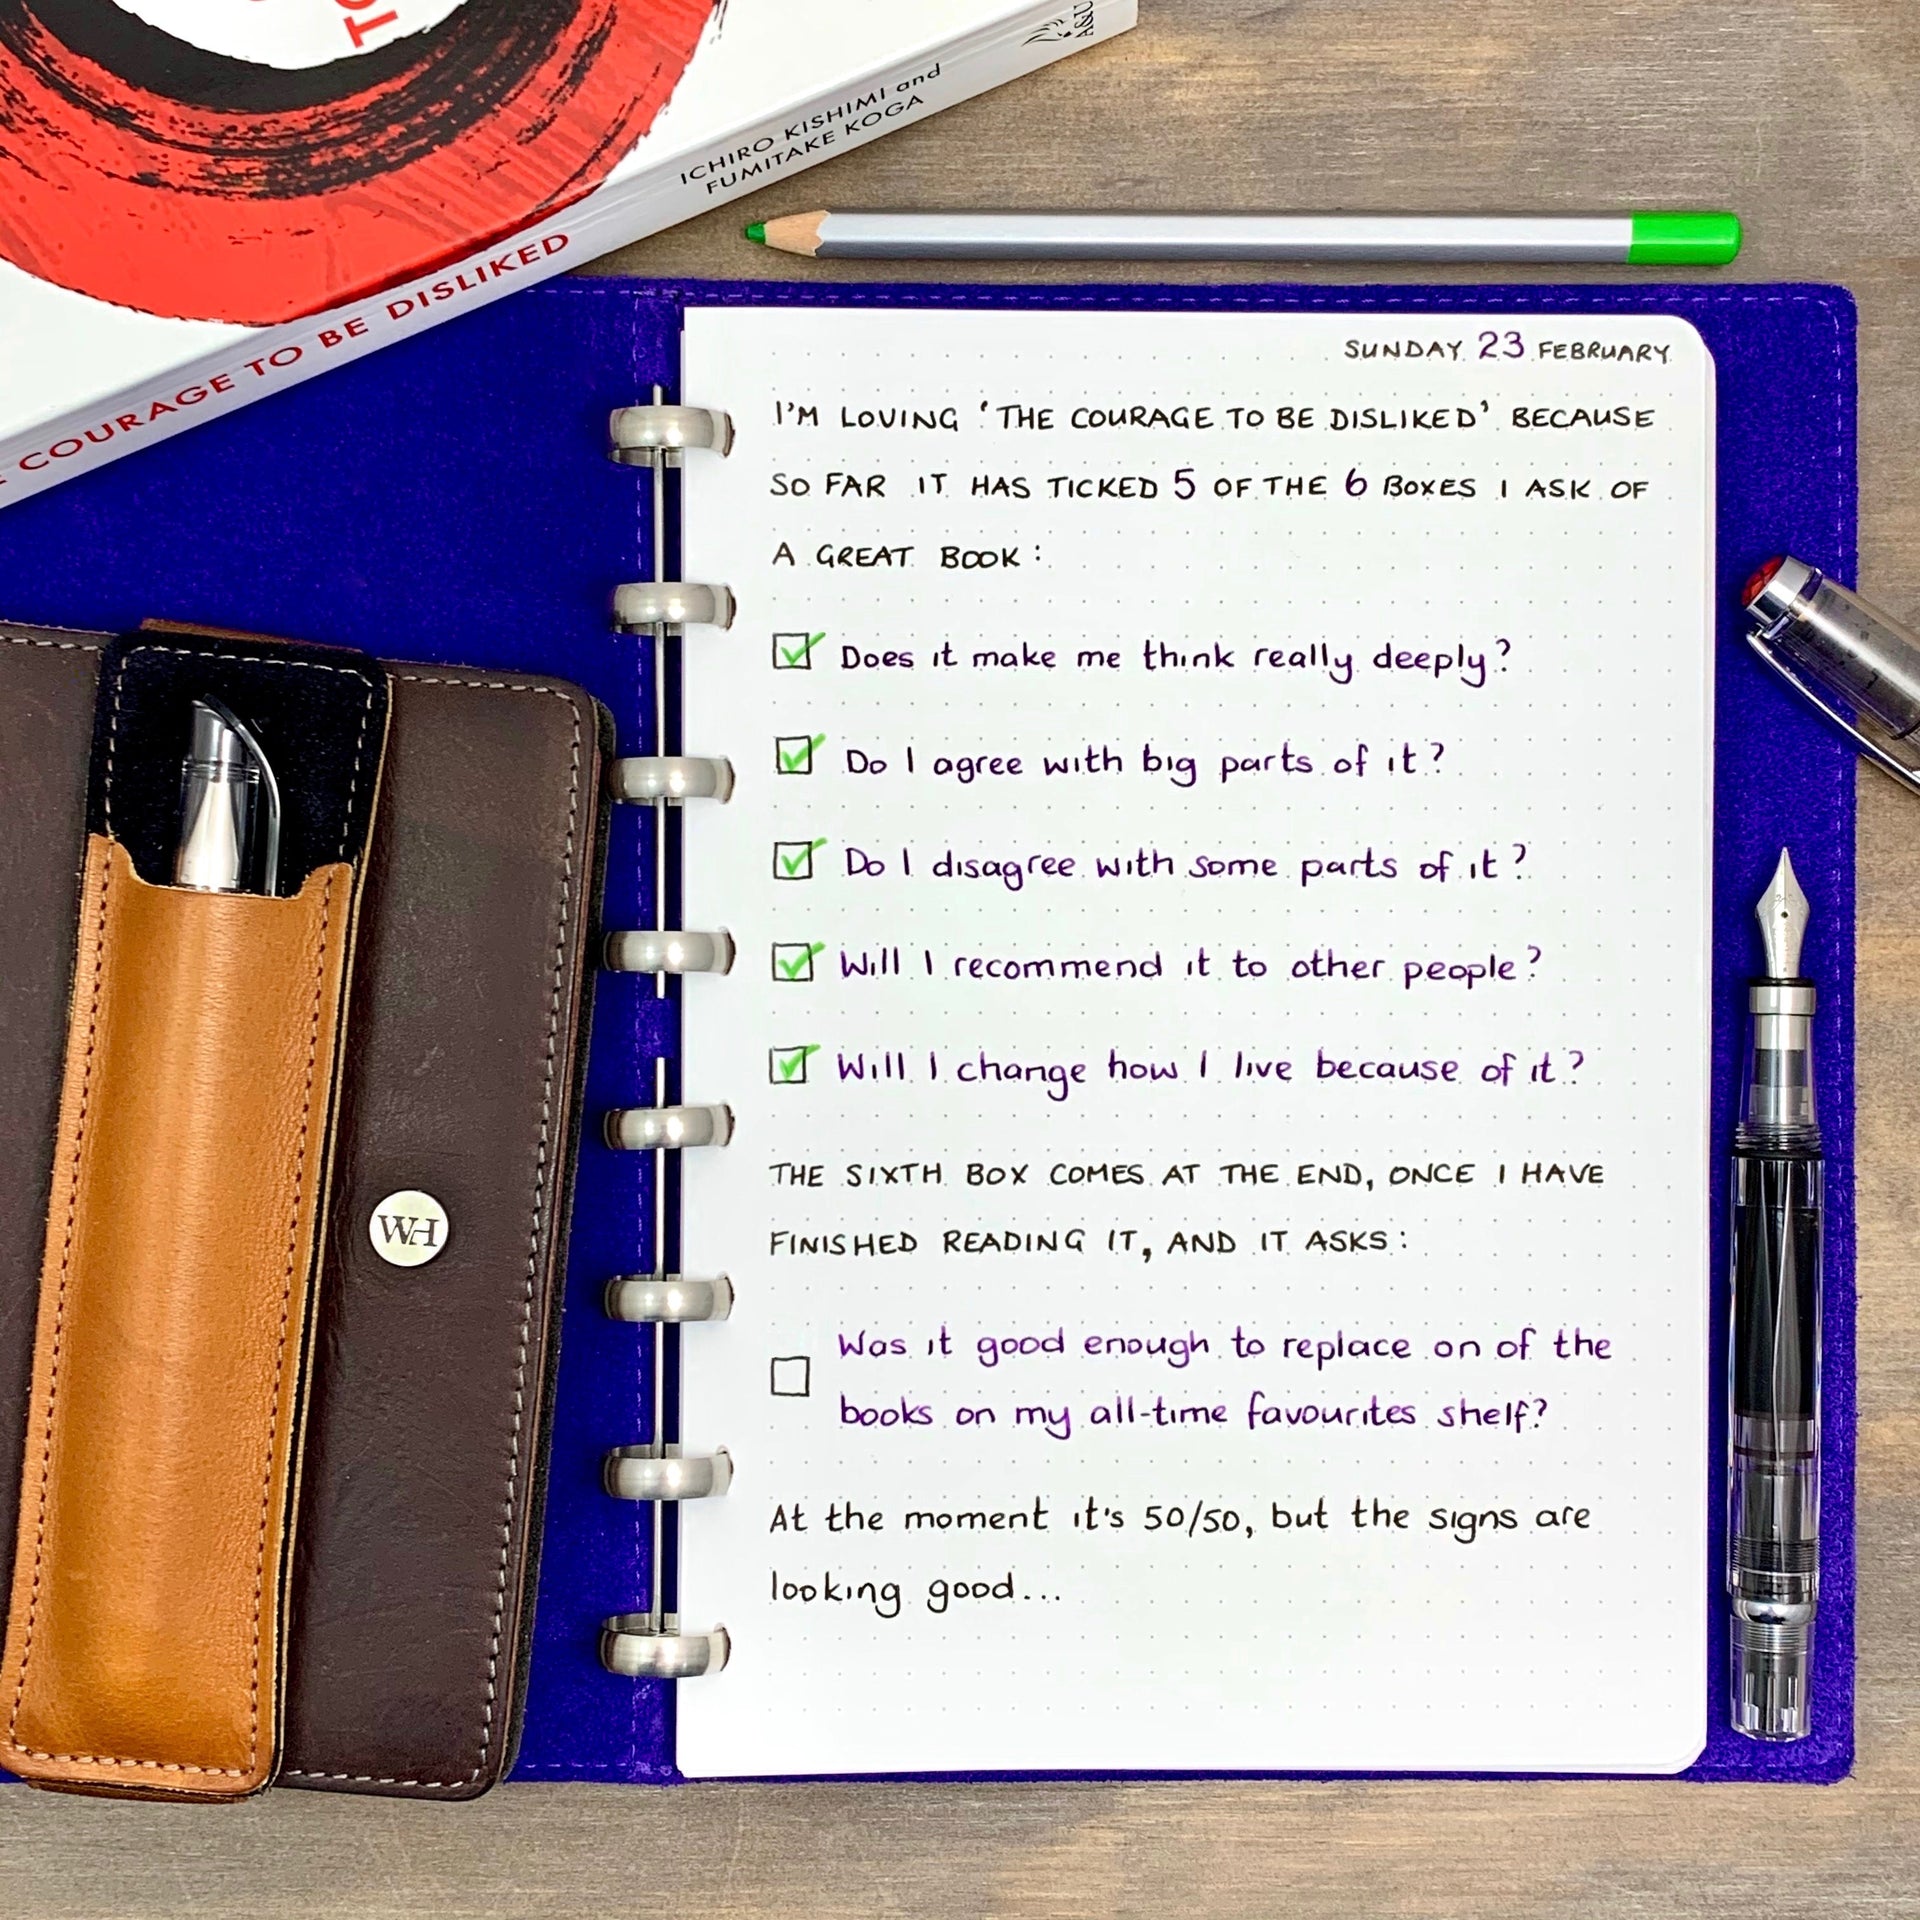 TO
ICHIRO KISHIMI and
FUMITAKE KOGA
A&U
COURAGE TO BE DISLIKED
SUNDAY 23 FEBRUARY
I'M LOVING 'THE COURAGE TO BE DISLIKED' BECAUSE
SO FAR IT HAS TICKED 5 OF THE 6 BOXES I ASK OF
A GREAT BOOK:
Does it make me think really deeply?
Do I agree with big parts of it?
Do I disagree with some parts of it?
Will I recommend it to other people?
Will I change how I live because of it?
THE SIXTH BOX COMES AT THE END, ONCE I HAVE
FINISHED READING IT, AND IT ASKS:
Was it good enough to replace on of the
books on my all-time favourites shelf?
At the moment it's 50/50, but the signs are
looking good...
WH